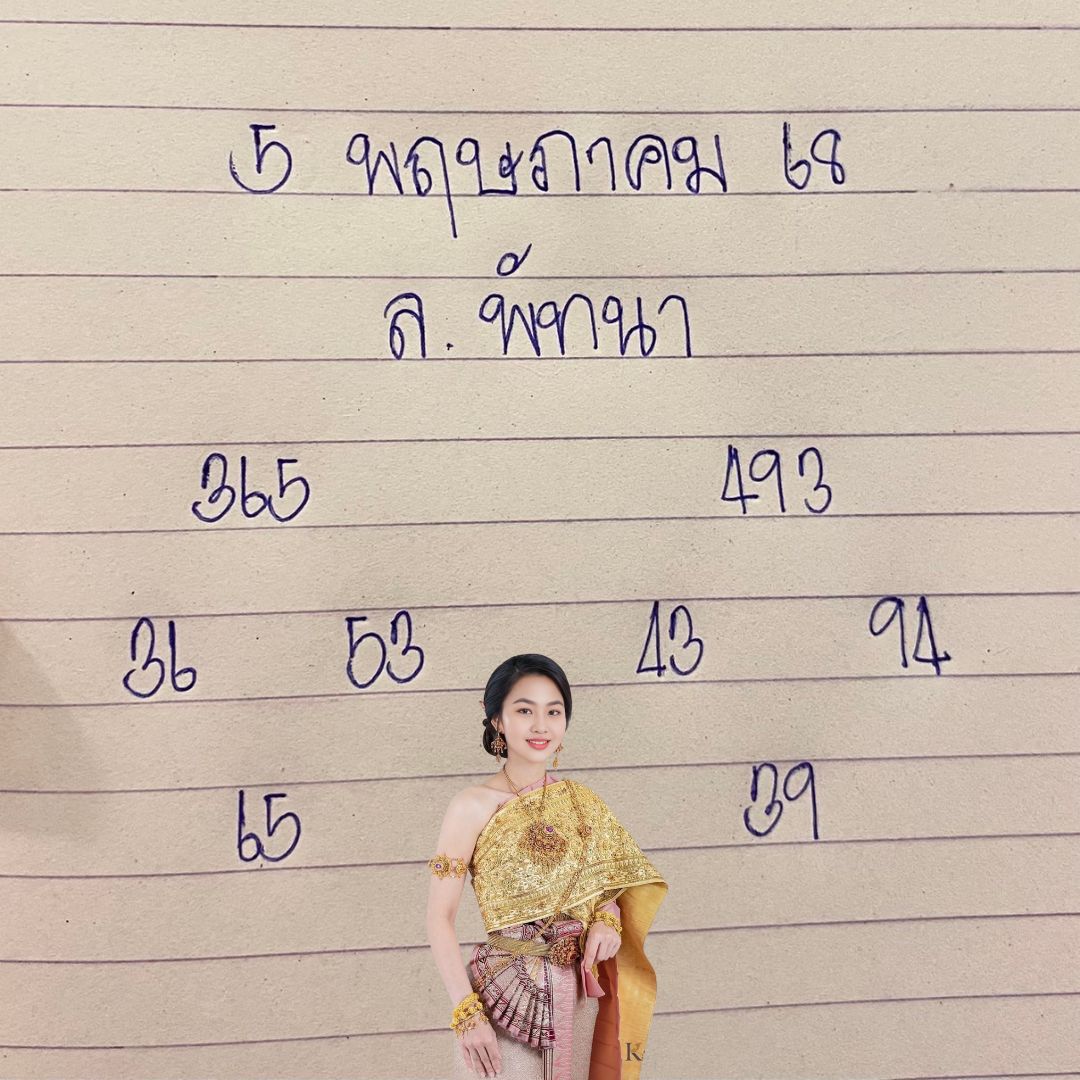 5 พฤษภาคม 68
ล. พัทนา
365 493
36 53 43 94
65 39
K